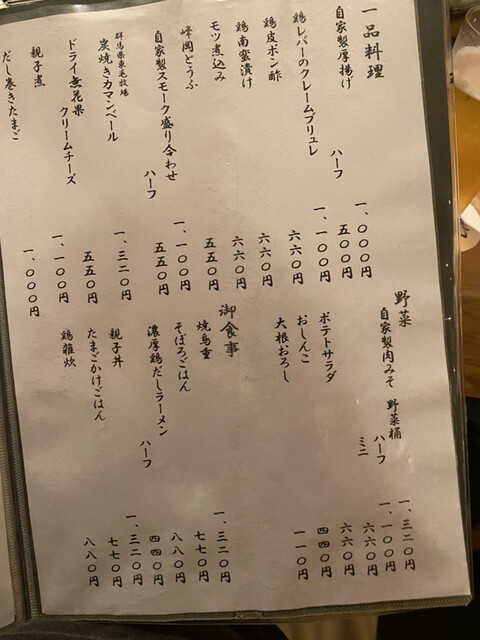 一品料理
自家製厚揚げ 一、〇〇〇円
ハーフ 五〇〇円
鶏レバーのクレームブリュレ 一、一〇〇円
鶏皮ポン酢 六六〇円
鶏南蛮漬け 六六〇円
モツ煮込み 六六〇円
峰岡とうふ 五五〇円
自家製スモーク盛り合わせ 一、一〇〇円
ハーフ 五五〇円
群馬県東毛牧場
炭焼きカマンベール 一、三二〇円
ドライ無花果
クリームチーズ 五五〇円
親子煮 一、一〇〇円
だし巻きたまご 一、〇〇〇円
野菜
自家製肉みそ 野菜桶 一、三二〇円
ハーフ 一、一〇〇円
ミニ 六六〇円
ポテトサラダ 六六〇円
おしんこ 四四〇円
大根おろし 一一〇円
御食事
焼鳥重 一、三二〇円
そぼろごはん 七七〇円
濃厚鶏だしラーメン 八八〇円
ハーフ 四四〇円
親子丼 一、三二〇円
たまごかけごはん 七七〇円
鶏雑炊 八八〇円